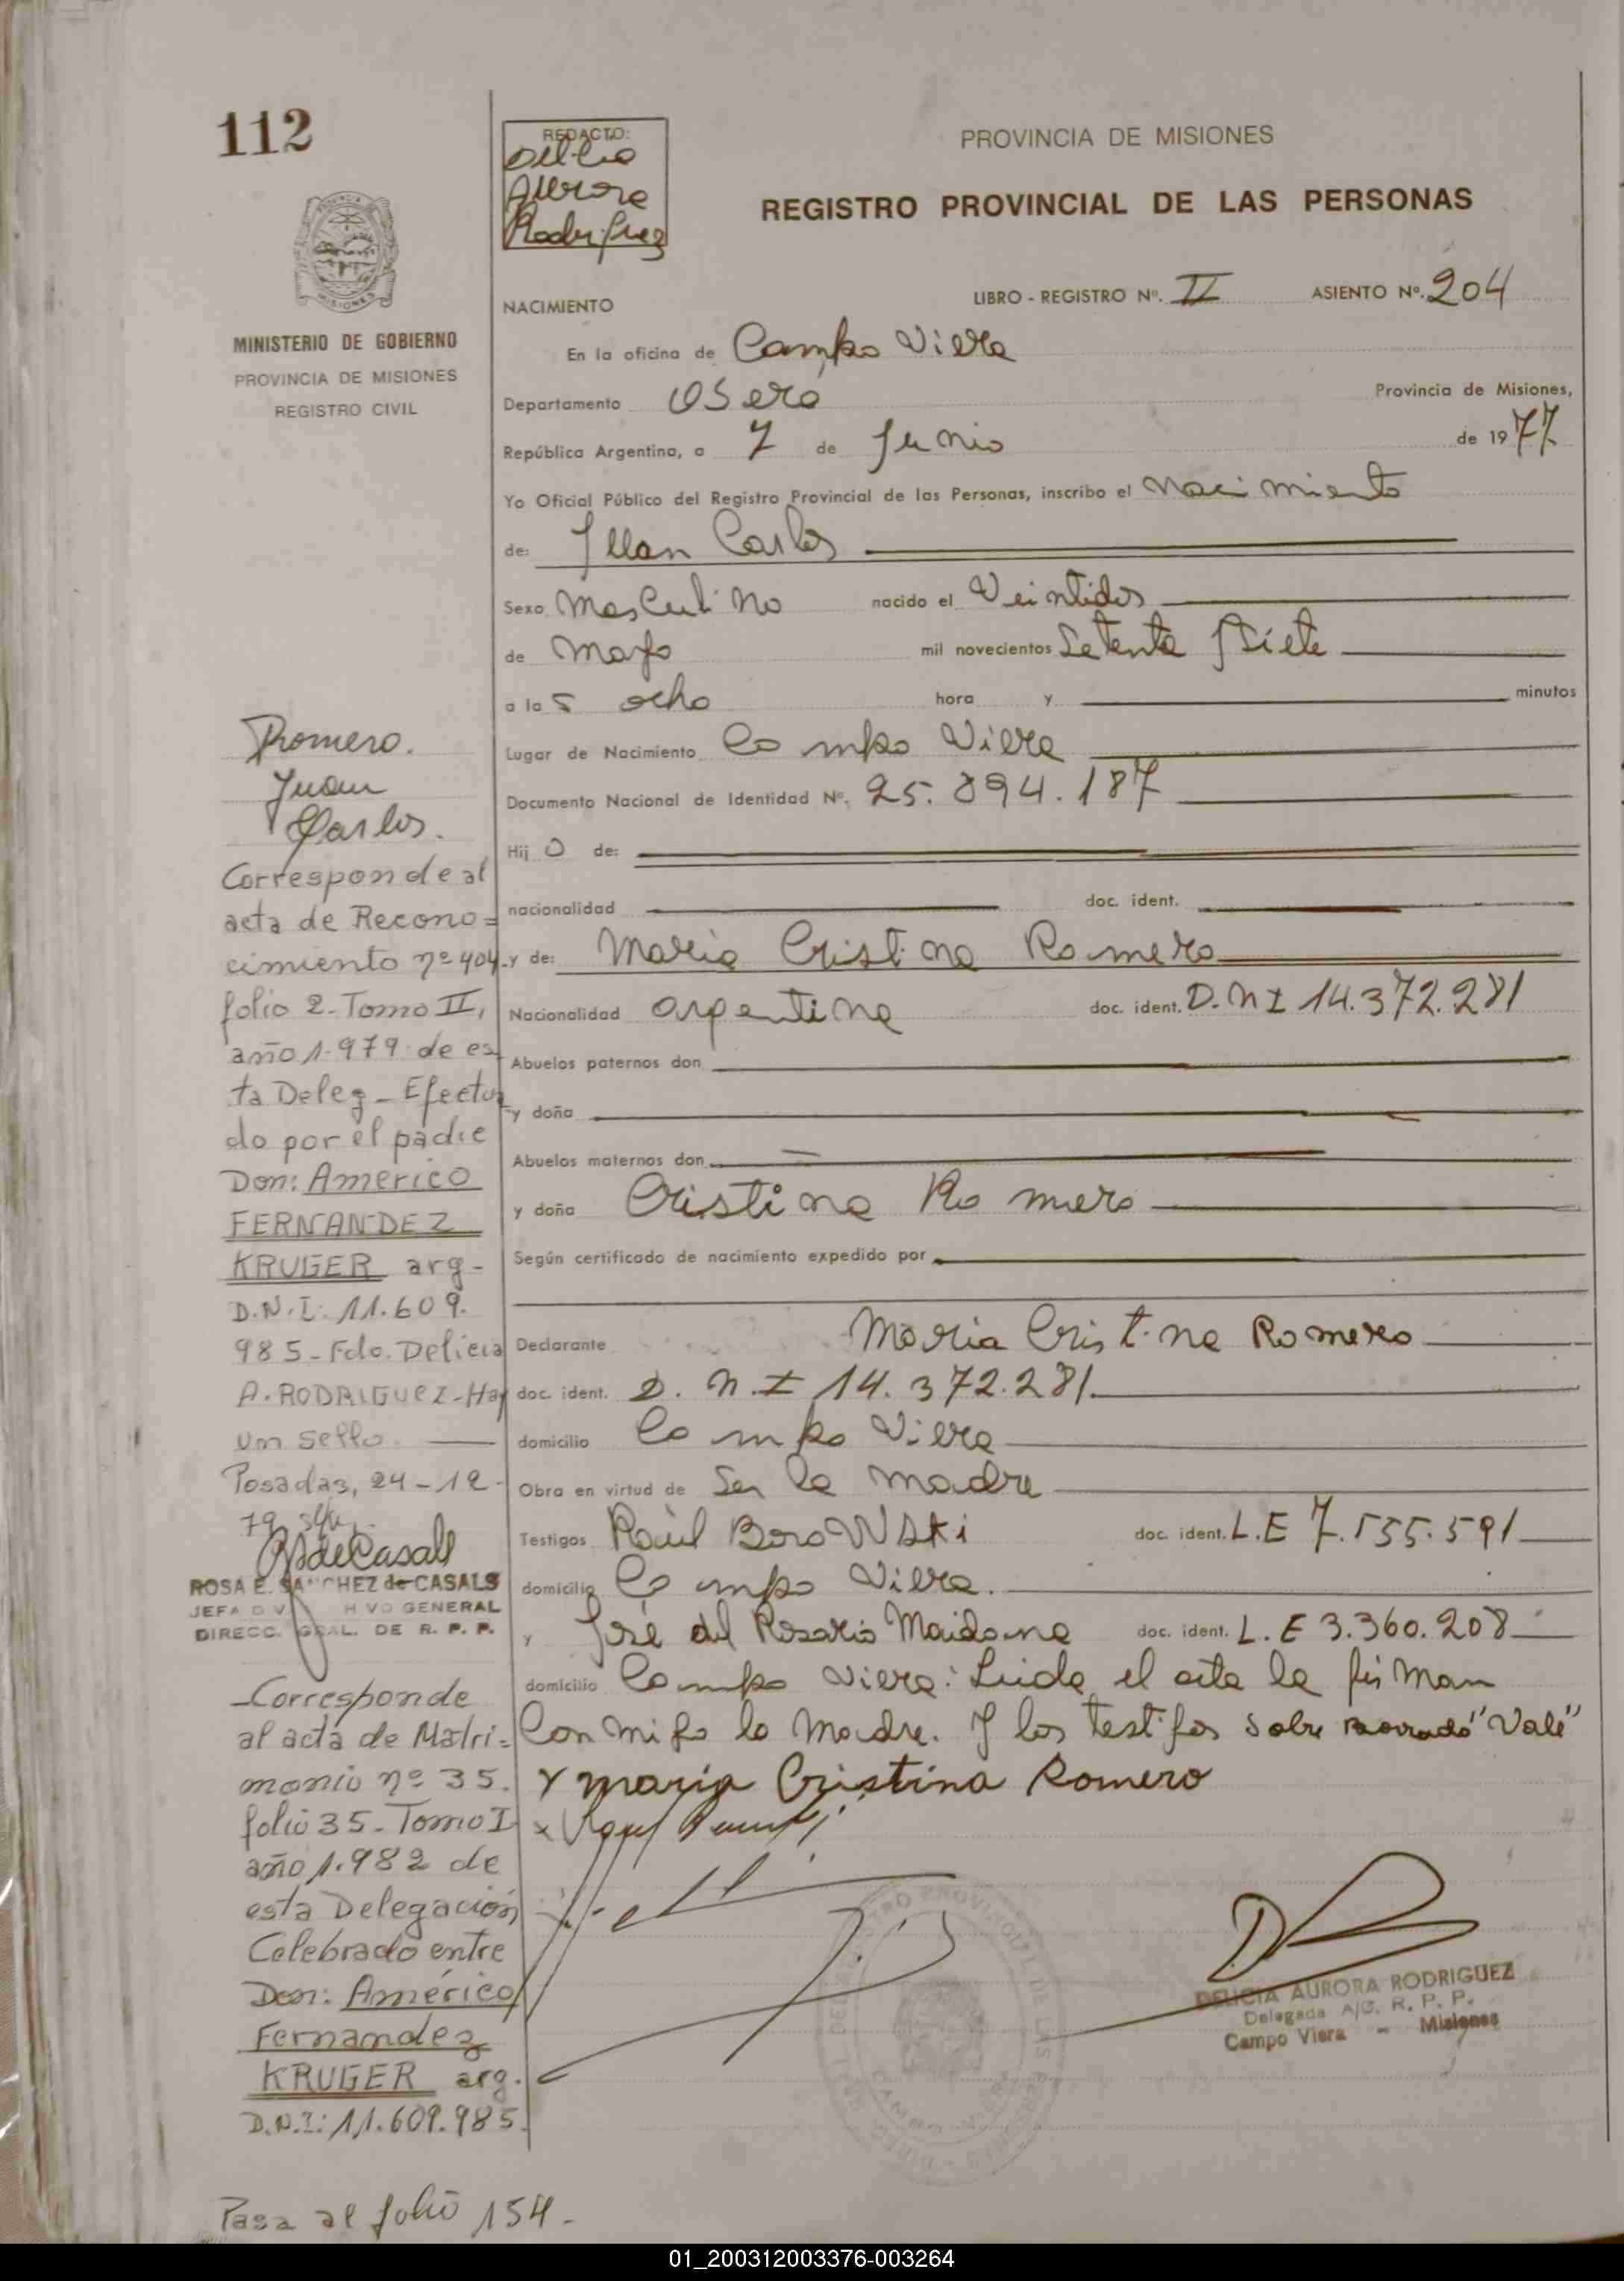 112
REDACTO:
Aurora
Rodriguez
PROVINCIA DE MISIONES
REGISTRO PROVINCIAL DE LAS PERSONAS
NACIMIENTO
LIBRO - REGISTRO Nº. II ASIENTO Nº. 204
MINISTERIO DE GOBIERNO
PROVINCIA DE MISIONES
REGISTRO CIVIL
En la oficina de Campo Viera
Departamento Oberá
Provincia de Misiones,
República Argentina, a 7 de Junio de 1977
Yo Oficial Público del Registro Provincial de las Personas, inscribo el Nacimiento
de: Juan Carlos
Sexo Masculino nacido el Veintidos
de Mayo mil novecientos Setenta y Siete
a las ocho hora y minutos
Lugar de Nacimiento Campo Viera
Documento Nacional de Identidad Nº. 25.894.187
Hijo de:
nacionalidad doc. ident.
y de: Maria Cristina Romero
Nacionalidad argentina doc. ident. D.N.I 14.372.281
Abuelos paternos don
y doña
Abuelos maternos don
y doña Cristina Romero
Según certificado de nacimiento expedido por
Declarante Maria Cristina Romero
doc. ident. D.N.I 14.372.281
domicilio Campo Viera
Obra en virtud de Ser la madre
Testigos Raúl Borowski doc. ident. L.E 7.555.591
domicilio Campo Viera.
y José del Rosario Maidana doc. ident. L.E 3.360.208
domicilio Campo Viera: Leida el acta la firman
Conmigo la Madre. Y los testigos Sobre borrado "Vale"
Maria Cristina Romero
DELICIA AURORA RODRIGUEZ
Delegada A/C. R. P. P.
Campo Viera - Misiones
Romero.
Juan
Carlos.
Corresponde al
acta de Recono=
cimiento nº 404
folio 2-Tomo II,
año 1.979 de es
ta Deleg - Efectua
do por el padre
Don: Americo
FERNANDEZ
KRUGER arg-
D.N.I: 11.609.
985-Fdo. Delicia
A. RODRIGUEZ-Hay
un sello.
Posadas, 24-12-
79
ROSA E. SANCHEZ de CASALS
JEFA DIV. ARCHIVO GENERAL
DIRECC. GRAL. DE R. P. P.
Corresponde
al acta de Matri=
monio nº 35.
folio 35-Tomo I
año 1.982 de
esta Delegación
Celebrado entre
Don: Américo
Fernandez
KRUGER arg.
D.N.I: 11.609.985.
Pasa al folio 154.-
01_200312003376-003264